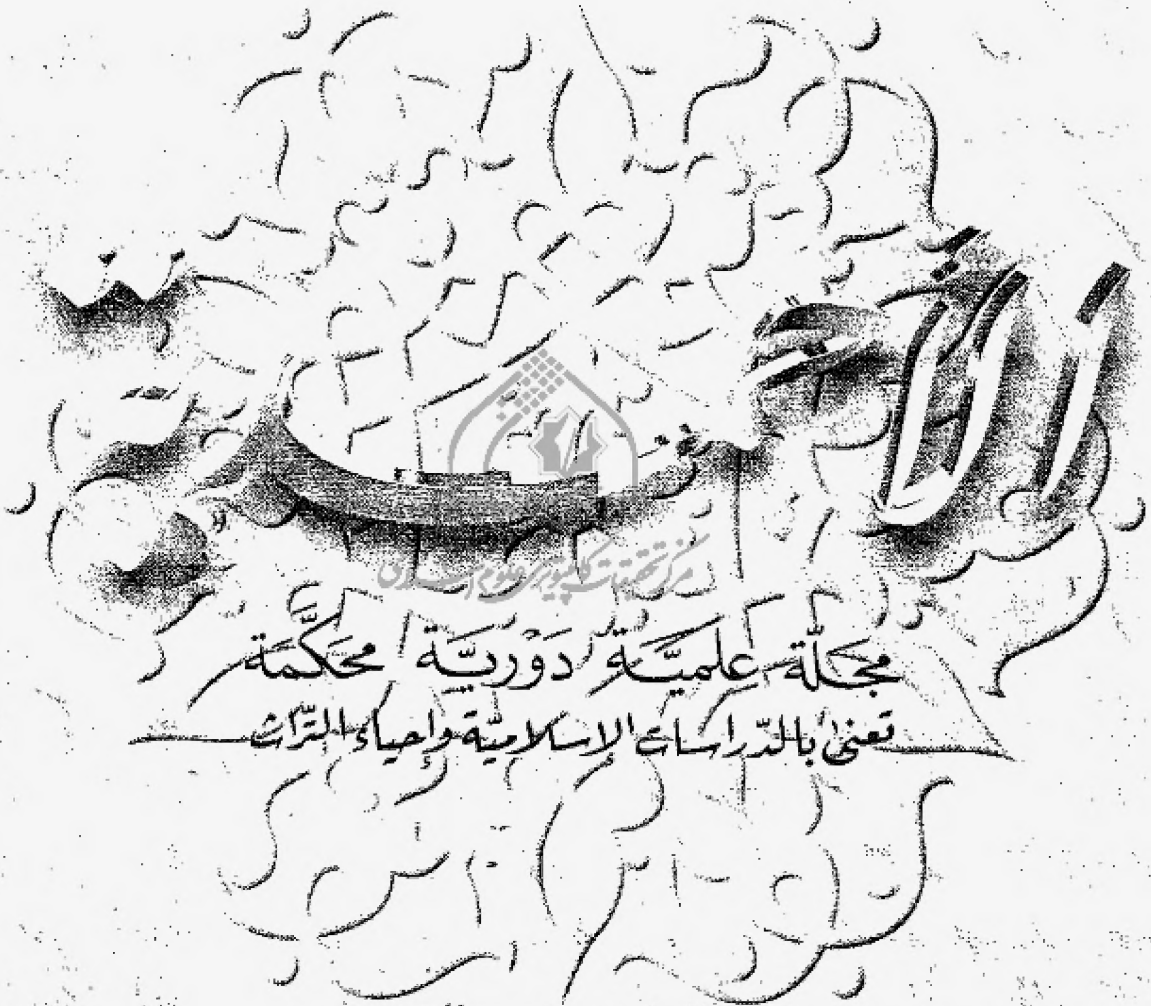 الأحمدية
مركز تحقيقات كامپيوترى علوم اسلامى
مَجَلّة عِلميَّة دَوْريَّة مُحَكَّمَة
تعنى بالدّراسات الإسلاميّة وإحياء التّراث